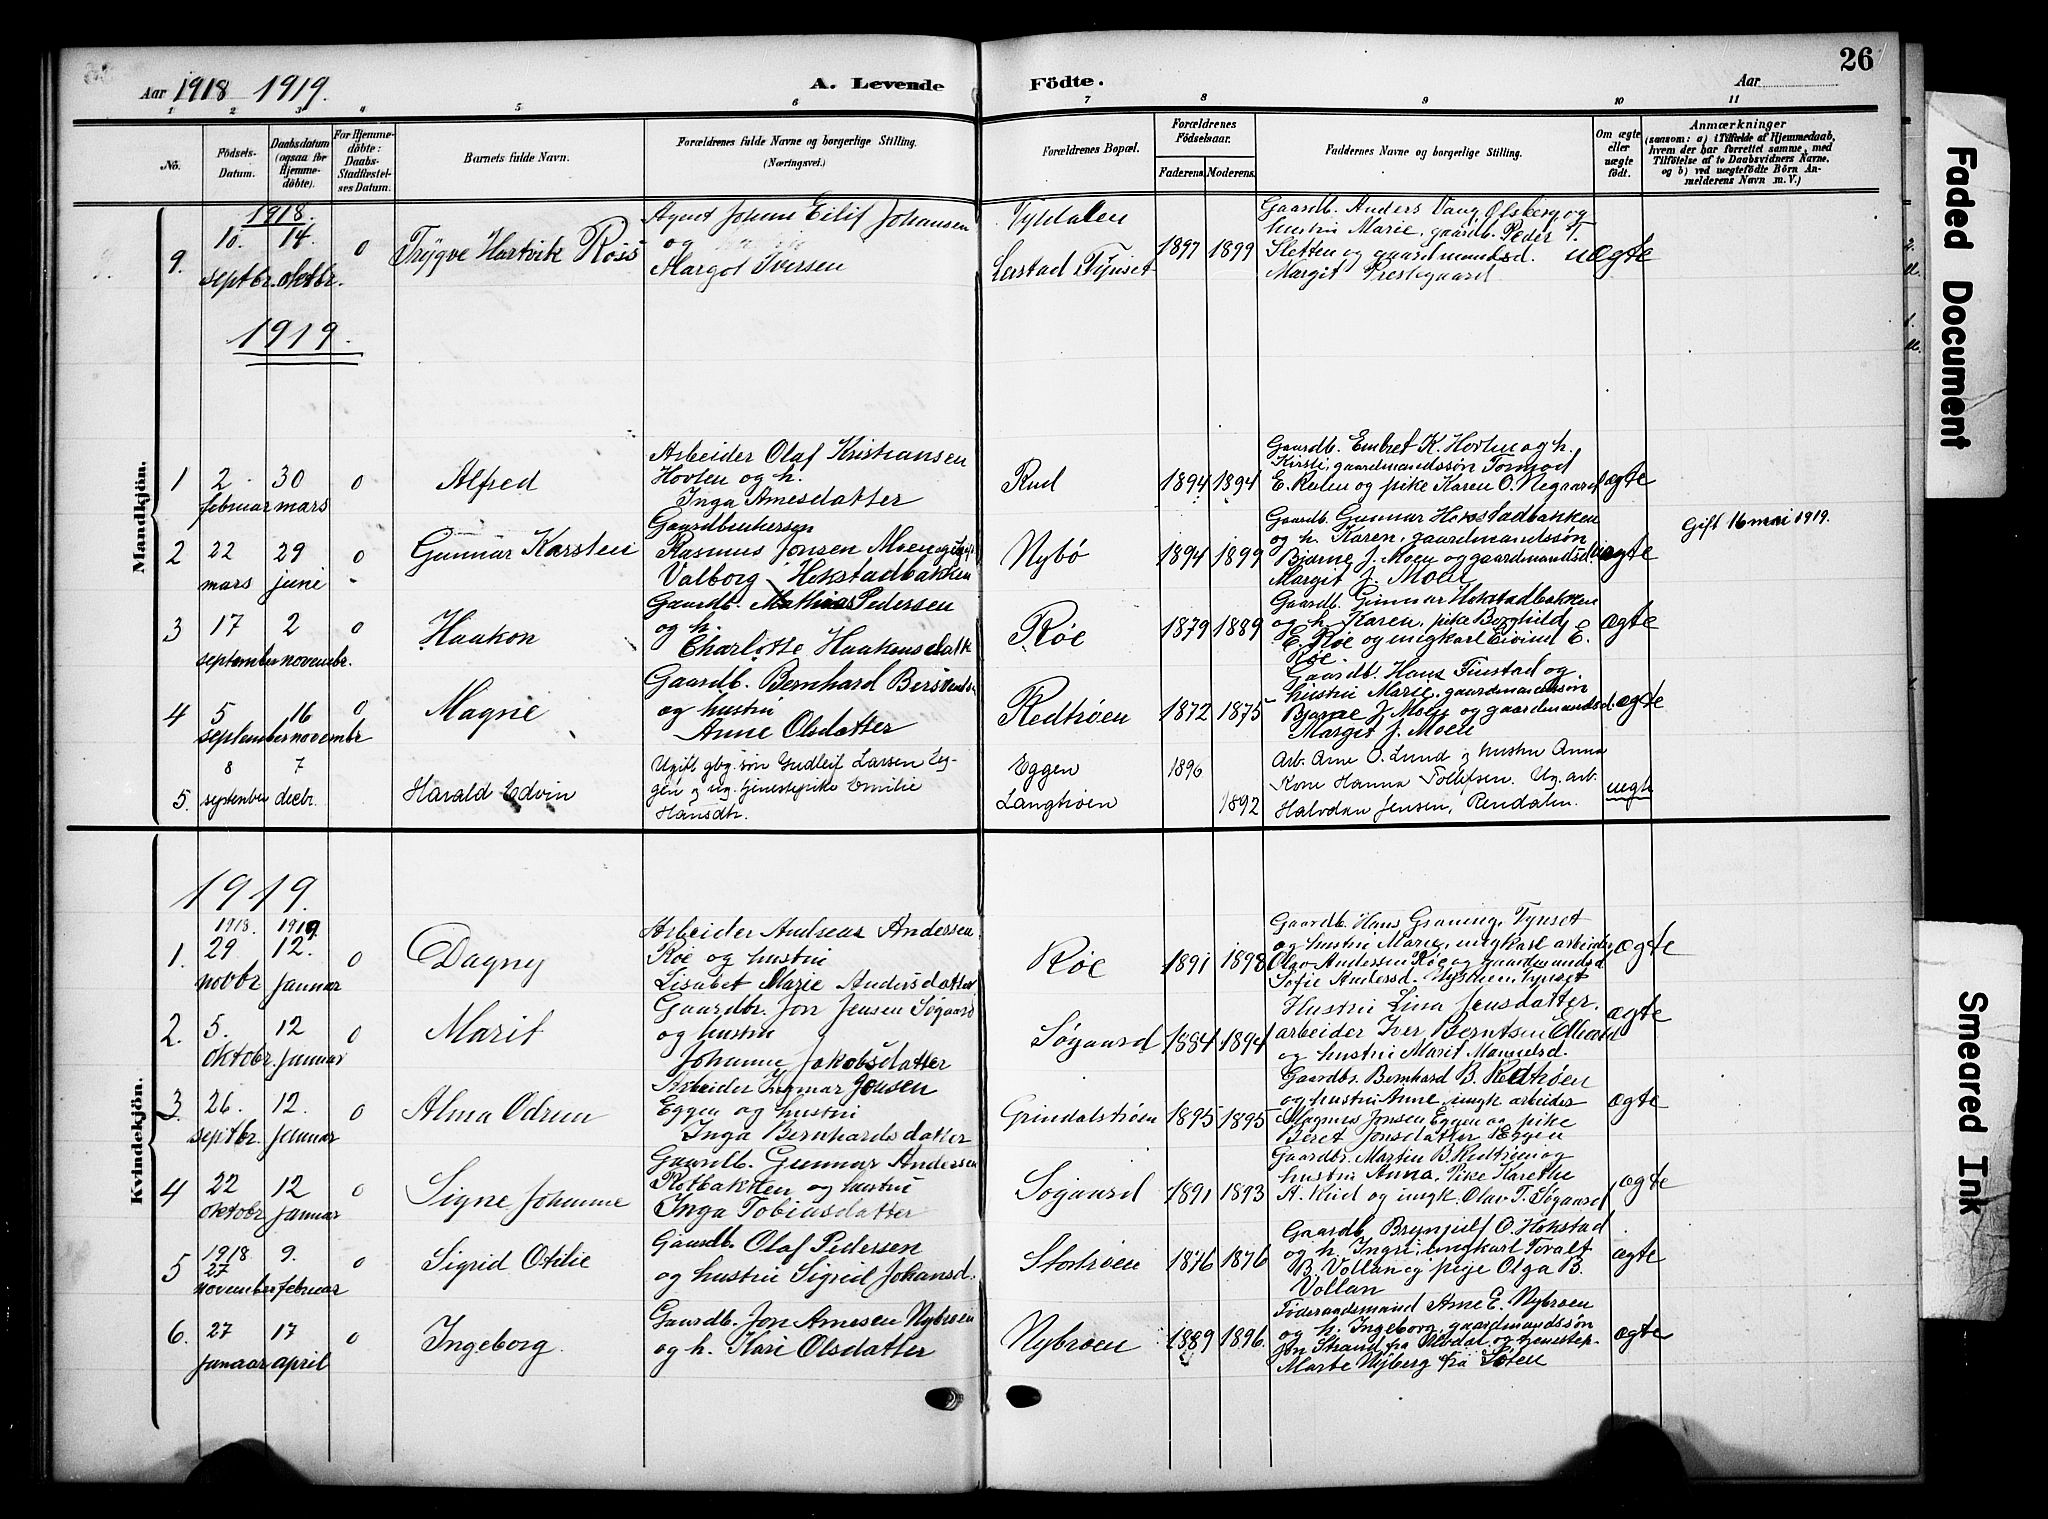 26
Aar 1918 1919.
A. Levende Födte.
Aar
1 2 3 4 5 6 7 8 9 10 11
No.
Födsels-Datum.
Daabsdatum (ogsaa for Hjemme-döbte).
For Hjemme-döbte: Daabs-Stadfæstel-ses Datum.
Barnets fulde Navn.
Forældrenes fulde Navne og borgerlige Stilling.
(Næringsvei.)
Forældrenes Bopæl.
Forældrenes Födselsaar.
Faderens. Moderens.
Faddernes Navne og borgerlige Stilling.
Om ægte eller uægte födt.
Anmærkninger
(saasom: a) i Tilfælde af Hjemmedaab, hvem der har forrettet samme, med Tilföielse af to Daabsvidners Navne, og b) ved uægtefödte Börn An-melderens Navn m. V.)
Mandkjön.
1918.
9. 10. septbr. 14. oktbr. 0
Trygve Hartvik Røss
Agent Johan Eilif Johansen
og
Margot Iversen
Tyldalen
Lerstad Tynset
1897 1899
Gaardb. Anders Vang, Olsberg og
hustru Marie, gaardb. Peder T.
Sletten og gaardmandsd.
Margit Prestegaard.
uægte
1919.
1 2 februar 30 mars 0
Alfred
Arbeider Olaf Kristiansen
Hovten og h.
Inga Arnesdatter
Rud
1894 1894
Gaardb. Embret K. Hovten og h.
Kirsti, gaardmandssøn Tormod
E. Reilen og pike Karen O. Negaard
ægte
2 22 mars 29 juni 0
Gunnar Karsten
Gaardbrukersøn
Rasmus Jonsen Moen og ugift
Valborg Hokstadbakken
Nybø
1894 1899
Gaardb. Gunnar Hokstadbakken
og h. Karen, gaardmandssøn
Bjarne J. Moen og gaardmandsd.
Margit J. Moen
uægte
Gift 16 mai 1919.
3 17 september 2 novembr. 0
Haakon
Gaardb. Mathias Pedersen
og h.
Charlotte Haakensdatter
Røe
1879 1889
Gaardb. Gunnar Hokstadbakken
og h Karen, pike Borghild
E. Røe og ungkarl Eivind E.
Røe.
ægte
4 5 september 16 novembr 0
Magne
Gaardb. Bernhard Bersvends.
og hustru
Anne Olsdatter
Redtrøen
1872 1875
Gaardb. Hans Finstad og
hustru Marie, gaardmandssøn
Bjarne J. Moen og gaardmandsd.
Margit J. Moen
ægte
5. 8 september 7 decbr.
Harald Edvin
Ugift gbg. søn Gudleif Larsen Eg-
gen og ug. tjenestepike Emilie
Hansdtr.
Eggen
Langtrøen
1896
1892
Arb. Arne O. Lund og hustru Anna
Kone Hanna Tollefsen. Ug. arb.
Halvdan Jensen, Rendalen.
uegte
Kvindekjön.
1919.
1918. 1919.
1. 29 novbr 12. januar 0
Dagny
Arbeider Andreas Andersen
Røe og hustru
Lisabet Marie Andersdatter
Røe
1891 1898
Gaardb. Hans Graning, Tynset
og hustru Marie, ungkarl arbeider
Olav Andersen Røe og gaardmandsd.
Sofie Andersd. Nystuen, Tynset
ægte
2. 5. oktobr. 12 januar 0
Marit
Gaardbr. Jon Jensen Søgaard
og hustru
Johanne Jakobsdatter
Søgaard
1884 1894
Hustru Lina Jensdatter,
arbeider Iver Berntsen
og hustru Marit Manuelsd.
ægte
3. 26. septbr. 12. januar 0
Alma Odrun
Arbeider Ingmar Jonsen
Eggen og hustru
Inga Bernhardsdatter
Grindalstrøen
1895 1895
Gaardbr. Bernhard B. Redtrøen
og hustru Anne, ungk arbeider
Magnus Jonsen Eggen og pike
Beret Jonsdatter Eggen
ægte
4 22 oktobr 12 januar 0
Signe Johanne
Gaardb. Gunnar Andersen
Røtbakken og hustru
Inga Tobiasdatter
Søgaard
1891 1893
Gaardbr. Martin B. Redtrøen og
hustru Anna, Pike Karethe
A. Rud og ungk. Olav T. Søgaard
ægte
5 1918 27 november 9. februar 0
Sigrid Otilie
Gaardb. Olaf Pedersen
og hustru Sigrid Johansd.
Stortrøen
1876 1876
Gaardb. Brynjulf O. Hokstad
og h. Ingri, ungkarl Toralf
B. Vollan og pige Olga B.
Vollan
ægte
6. 27 januar 17 april 0
Ingeborg.
Gaardb. Jon Arnesen Nybrøen
og h. Kari Olsdatter
Nybrøen
1889 1896.
Føderaadsmand Arne E. Nybrøen
og h. Ingeborg, gaardmandssøn
Jon Strand fra Alvdal og tjenestep.
Marte Nyberg fra Sølen
ægte
Faded Document
Smeared Ink